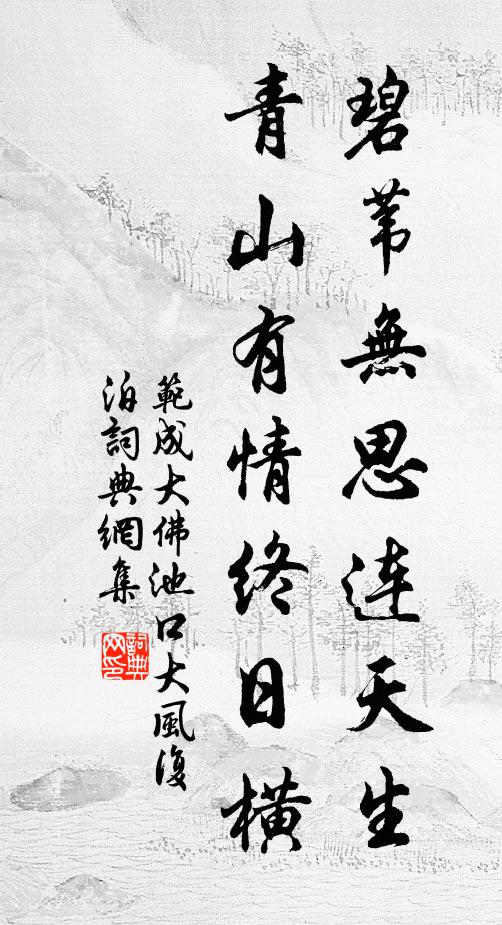 碧苇無思連天生
青山有情終日橫
範成大佛池口大風復
泊詞典網集
詞典网印